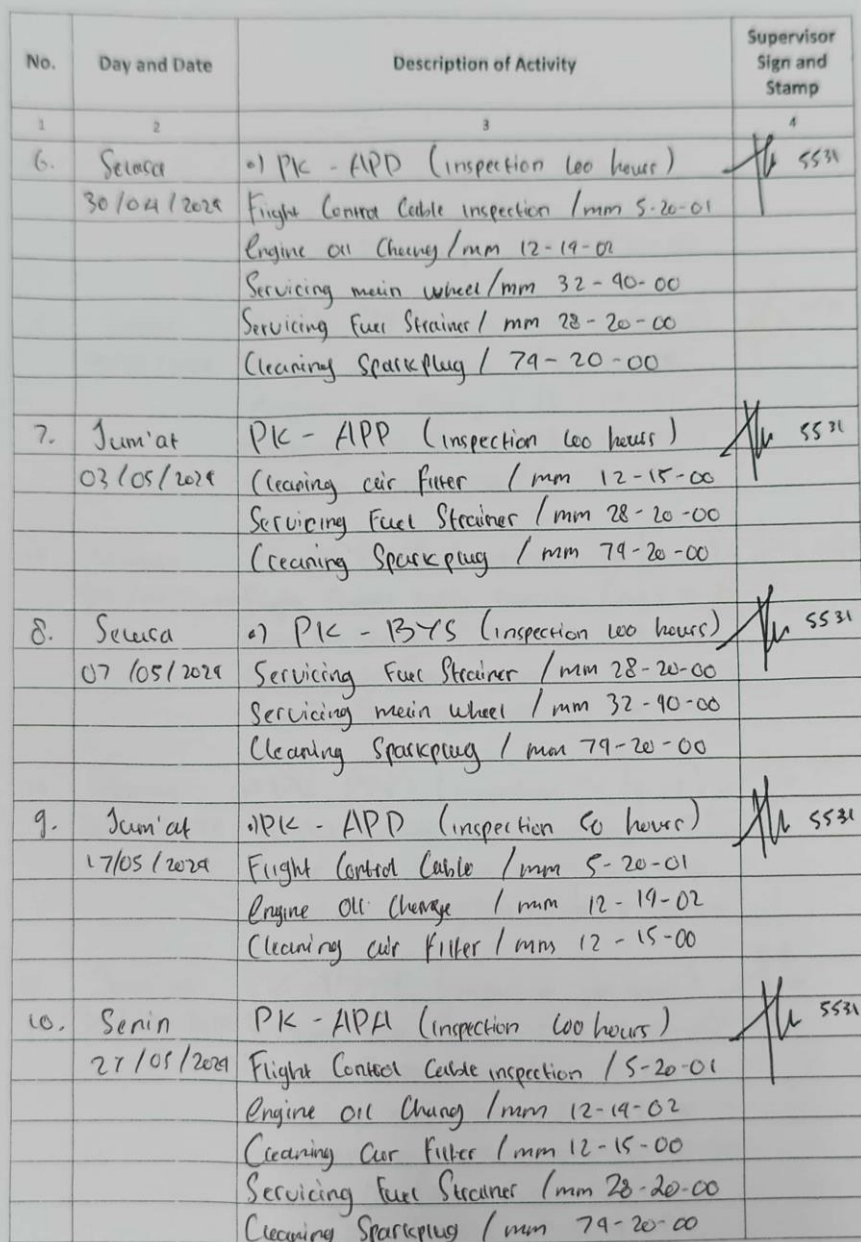 No. Day and Date Description of Activity Supervisor Sign and Stamp
1 2 3 4
6. Selasa •) PK - APD (inspection 100 hours) 5531
30/04/2024 Flight Control Cable inspection / mm 5-20-01
Engine oil Chang / mm 12-19-02
Servicing main wheel / mm 32-40-00
Servicing Fuel Strainer / mm 28-20-00
Cleaning Sparkplug / 74-20-00
7. Jum'at PK - APP (inspection 100 hours) 5531
03/05/2024 Cleaning air Filter / mm 12-15-00
Servicing Fuel Strainer / mm 28-20-00
Cleaning Sparkplug / mm 74-20-00
8. Selasa •) PK - BYS (inspection 100 hours) 5531
07/05/2024 Servicing Fuel Strainer / mm 28-20-00
Servicing main wheel / mm 32-40-00
Cleaning Sparkplug / mm 74-20-00
9. Jum'at •) PK - APD (inspection 50 hours) 5531
17/05/2024 Flight Control Cable / mm 5-20-01
Engine Oil Change / mm 12-19-02
Cleaning air Filter / mm 12-15-00
10. Senin PK - APA (inspection 100 hours) 5531
27/05/2024 Flight Control Cable inspection / 5-20-01
Engine oil Chang / mm 12-19-02
Cleaning air Filter / mm 12-15-00
Servicing Fuel Strainer / mm 28-20-00
Cleaning Sparkplug / mm 74-20-00